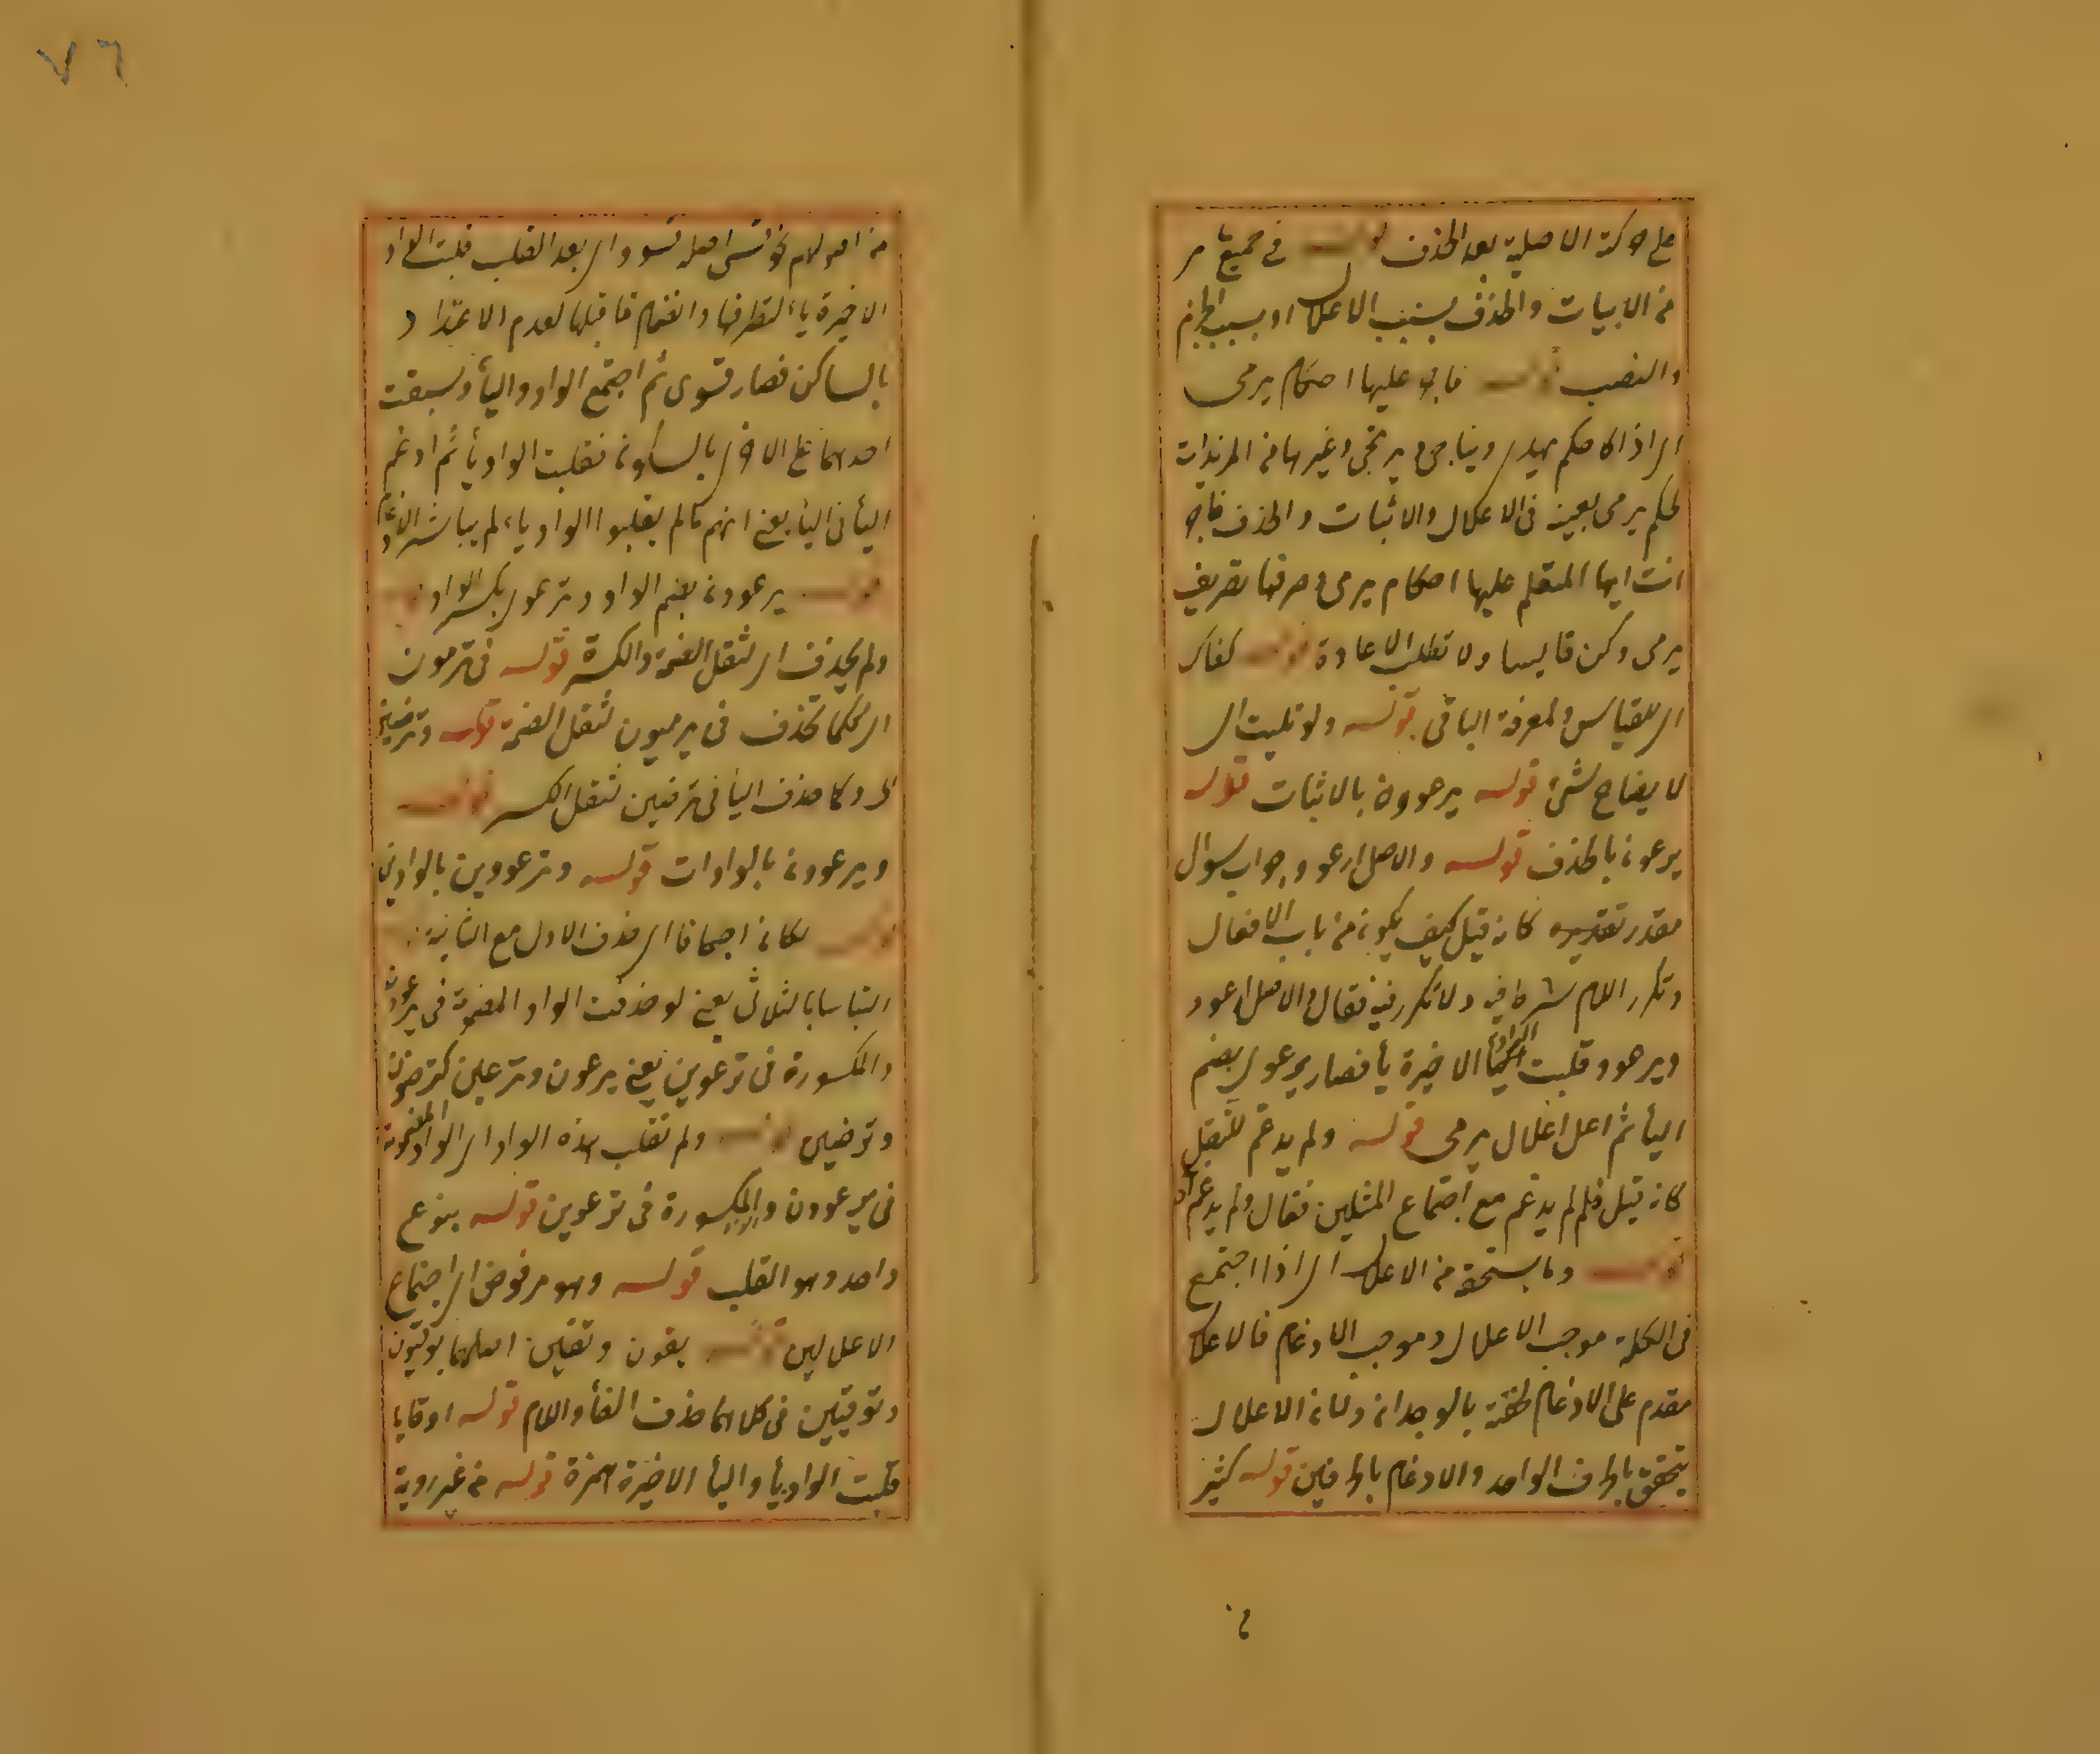 ٧٦
على حركة الاصلية بعد الحذف قوله في جميع ما مر
من الابيات والحذف بسبب الاعلال او بسبب الجزم
والنصب قوله فاجر عليها احكام يرمى
اى اذا كان حكم يهدى ويناجى ويرتجى وغيرها من المزيدات
كحكم يرمى بعينه فى الاعلال والاثبات والحذف فاجر
انت ايها المتعلم عليها احكام يرمى وصرفها تصريف
يرمى وكن قايسا ولا تطلب الاعادة قوله كفاك
اى للقياس ولمعرفة الباقى قوله ولو تليت اى
لا يضاح لشئ قوله يرعوون بالاثبات قوله
يرعون بالحذف قوله والاصل ارعوو جواب سوال
مقدر تقديره كانه قيل كيف يكون من باب الافعال
وتكرر اللام شرط فيه ولا تكرر فيه فقال والاصل ارعوو
ويرعوو قلبت الواو الاخيرة يأ فصار يرعوى بضم
اليأ ثم اعل اعلال يرمى قوله ولم يدغم للثقل
كانه قيل فلم لم يدغم مع اجتماع المثلين فقال ولم يدغم
قوله وما يستحقه من الاعلال اى اذا اجتمع
فى الكلمة موجب الاعلال وموجب الادغام فالاعلال
مقدم على الادغام لخفته بالوجدان ولان الاعلال
يتحقق بالحرف الواحد والادغام بالحرفين قوله كثير
من اصولهم نحو قسى اصله قسوو اى بعد القلب قلبت الواو
الاخيرة ياء لتطرفها وانضمام ما قبلها لعدم الاعتداد
بالساكن فصار قسوى ثم اجتمع الواو واليأ وسبقت
احديهما على الاخرى بالسكون فقلبت الواو يأ ثم ادغم
اليأ فى اليأ يعنى انهم ما لم يقلبوا الواو ياء لم يباشر الادغام
قوله يرعوون بضم الواو وترعوى بكسر الواو
ولم يحذف اى لثقل الضمة والكسرة قوله فى ترمون
اى كما تحذف فى يرميون لثقل الضمة قوله وترضين
اى وكما حذف اليأ فى ترضين لثقل الكسر قوله
ويرعوون بالواوات قوله وترعووين بالواوين
قوله لكان اجحافا اى حذف الاول مع الثانية
التباسا بالثلاثى يعنى لو حذفت الواو المضمومة فى يرعوون
والمكسورة فى ترعوين يعنى يرعون وترعين كترضون
وترضين قوله ولم تقلب هذه الواو اى الواو المضمومة
فى يرعوون والمكسورة فى ترعوين قوله بنوع
واحد وهو القلب قوله وهو مرفوض اى اجتماع
الاعلالين قوله يقون وتقين اصلهما يوقيون
وتوقيين فى كلاهما حذف الفأ واللام قوله اوقايا
قلبت الواو يأ واليأ الاخيرة همزة قوله من غير روية